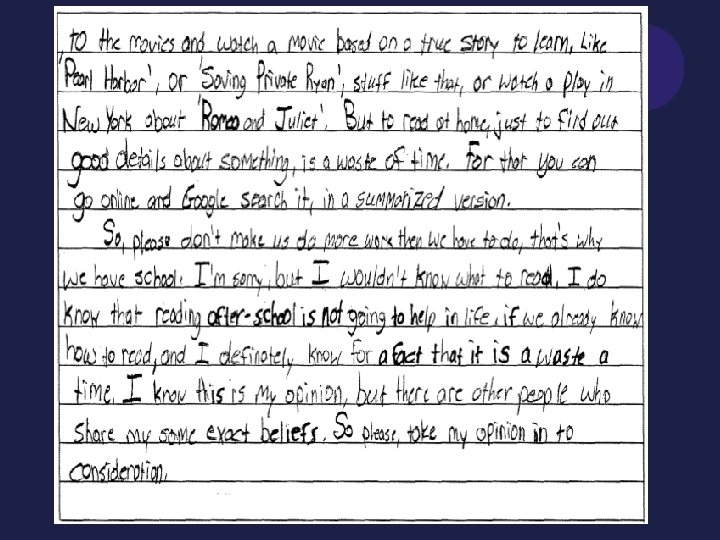 , to the movies and watch a movie based on a true story to learn, like
'Pearl Harbor', or 'Saving Private Ryan', stuff like that, or watch a play in
New York about 'Romeo and Juliet'. But to read at home, just to find out
good details about something, is a waste of time. For that you can
go online and Google search it, in a summarized version.
So, please don't make us do more work then we have to do, that's why
we have school. I'm sorry, but I wouldn't know what to read. I do
know that reading after-school is not going to help in life, if we already know
how to read, and I definetely know for a fact that it is a waste a
time. I know this is my opinion, but there are other people who
share my same exact beliefs. So please, take my opinion in to
consideration.